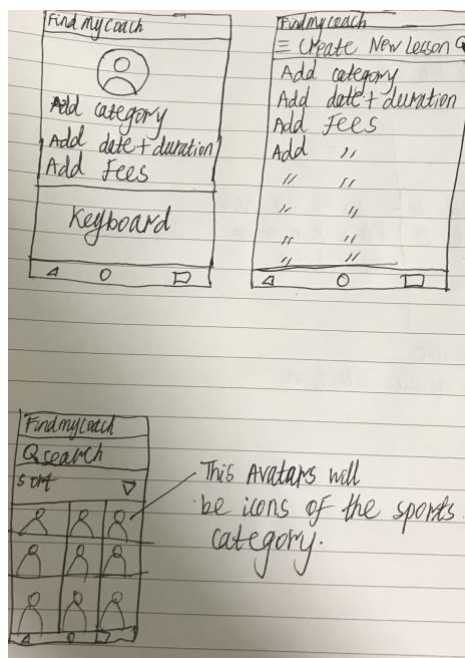 Findmycoach
Add category
Add date + duration
Add Fees
Keyboard
Findmycoach
Create New Lesson
Add category
Add date + duration
Add Fees
Add "
" "
" "
" "
" "
Findmycoach
search
Sort
This Avatars will
be icons of the sports
category.